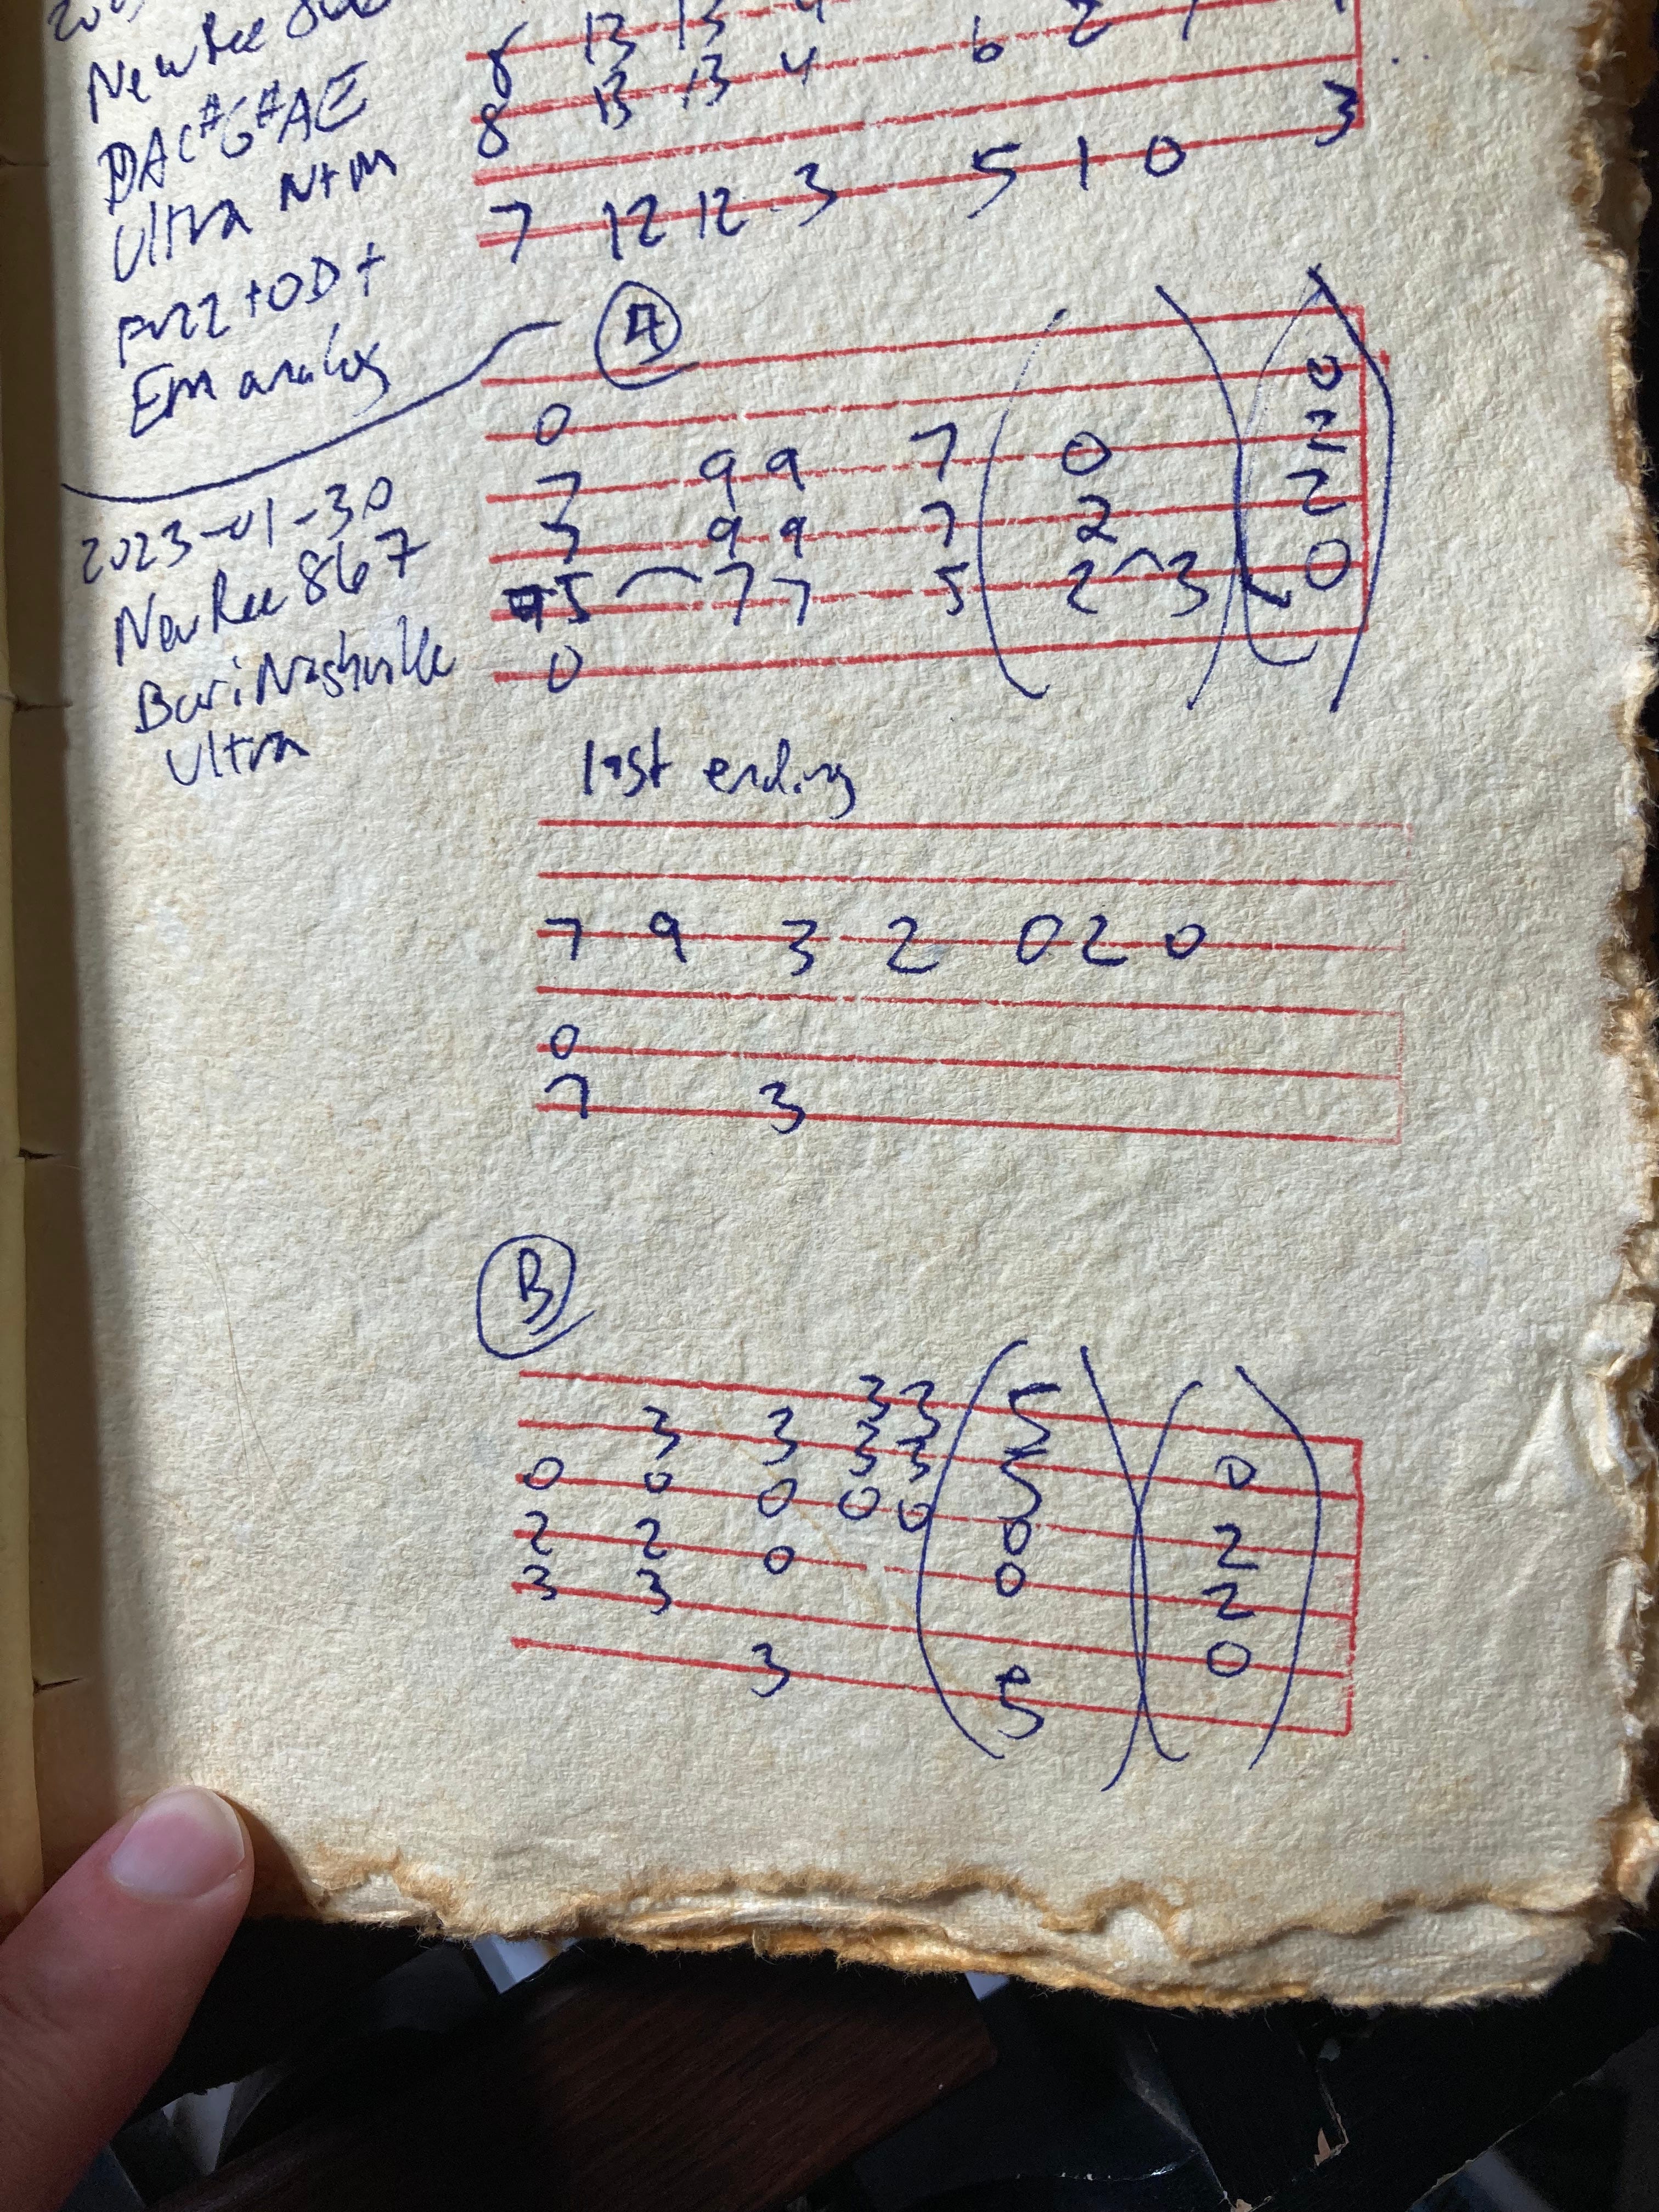 NewRec 866
DAC#G#AE
Ultra N+M
Fuzz+OD+
Em analog
8 13 13 4 6 2 1
8 13 13 4
7 12 12 3 5 1 0 3
2023-01-30
NewRec 867
Bari Nashville
Ultra
A
0 0
7 9 9 7 0 2
7 9 9 7 2 2
5 7 7 5 2 3 0
0
last ending
7 9 3 2 0 2 0
0
7 3
B
3 3 5
3 3 3 3 5 0
0 0 0 0 0 0 2
2 2 0 0 2
3 3 0
3 5